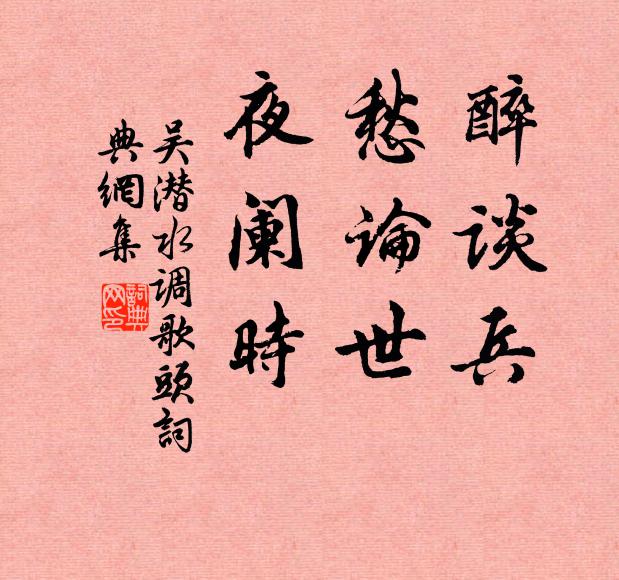 醉谈兵
愁論世
夜阑時
吴潜水调歌頭詞
典網集
詞典网印